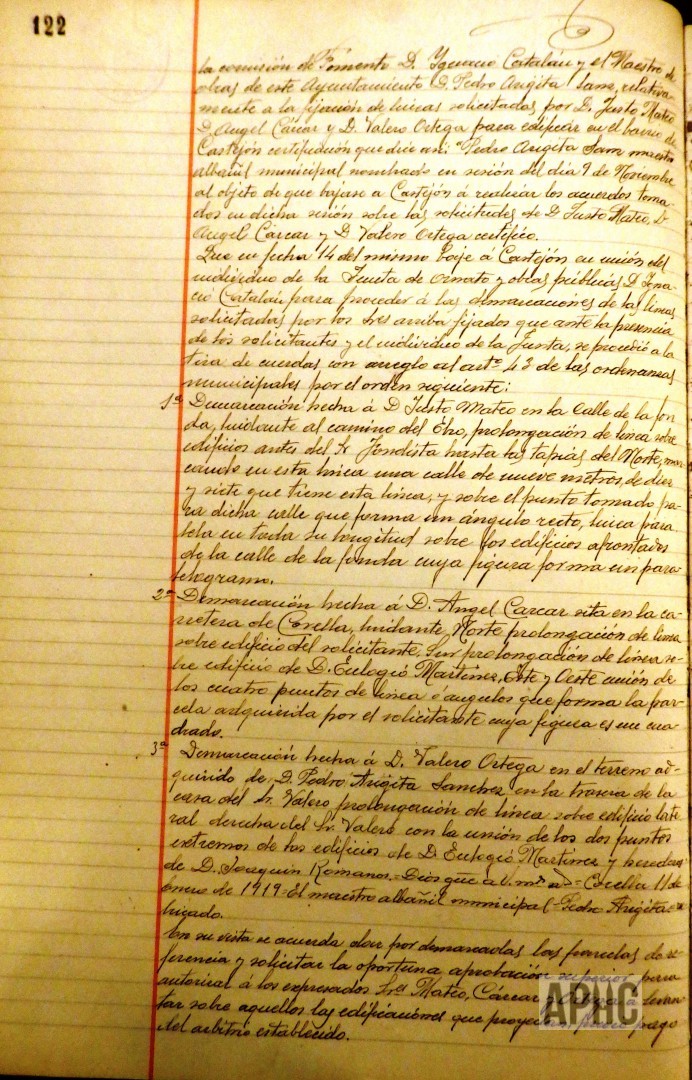 122
la comisión de Fomento D. Ygnacio Catalán y el Maestro de
obras de este Ayuntamiento D. Pedro Arigita Sanz, relativa
mente a la fijación de lineas solicitadas por D. Justo Mateo
D. Angel Cárcar y D. Valero Ortega para edificar en el barrio de
Castejón certificación que dice asi: "Pedro Arigita Sanz maestro
albañil municipal nombrado en sesión del dia 9 de Noviembre
al objeto de que bajase a Castejón á realizar los acuerdos toma-
dos en dicha sesión sobre las solicitudes de D. Justo Mateo, D.
Angel Cárcar y D. Valero Ortega certifico.
Que en fecha 14 del mismo baje a Castejón en unión del
individuo de la Junta de Ornato y obras públicas D. Igna-
cio Catalán para proceder á las demarcaciones de las lineas
solicitadas por los tres arriba fijados que ante la presencia
de los solicitantes y el individuo de la Junta, se procedió a la
tira de cuerdas con arreglo al artº 43 de las ordenanzas
municipales por el orden siguiente:
1ª Demarcación hecha á D. Justo Mateo en la Calle de la fon-
da, lindante al camino del Ebro, prolongación de linea sobre
edificios antes del Sr. Fondista hasta las tapias del Norte, mar
cando en esta linea una calle de nueve metros, de diez
y siete que tiene esta linea, y sobre el punto tomado pa-
ra dicha calle que forma un ángulo recto, linea para-
lela en toda su longitud sobre los edificios afrontados
de la calle de la fonda cuya figura forma un para
lelogramo.
2ª Demarcación hecha á D. Angel Carcar sita en la ca-
rretera de Corella, lindante Norte prolongación de linea
sobre edificio del solicitante, Sur prolongación de linea so-
bre edificio de D. Eulogio Martinez, Este y Oeste unión de
los cuatro puntos de linea ó angulos que forma la par-
cela adquirida por el solicitante cuya figura es un cua
drado.
3ª Demarcación hecha á D. Valero Ortega en el terreno ad-
quirido de D. Pedro Arigita Sanchez en la trasera de la
casa del Sr. Valero prolongación de linea sobre edificio late
ral derecha del Sr. Valero con la unión de los dos puntos
extremos de los edificios de D. Eulogio Martinez y herederos
de D. Joaquin Romanos.=Dios gue a V. mˢ aˢ= Corella 11 de
enero de 1919=El maestro albañil municipal=Pedro Arigita=
bricado.
En su vista se acuerda dar por demarcadas las parcelas de re
ferencia y solicitar la oportuna aprobación superior para
autorizar á los expresados Sres Mateo, Cárcar y Ortega á levan
tar sobre aquellos las edificaciones que proyectan previo pago
del arbitrio establecido.
APHC